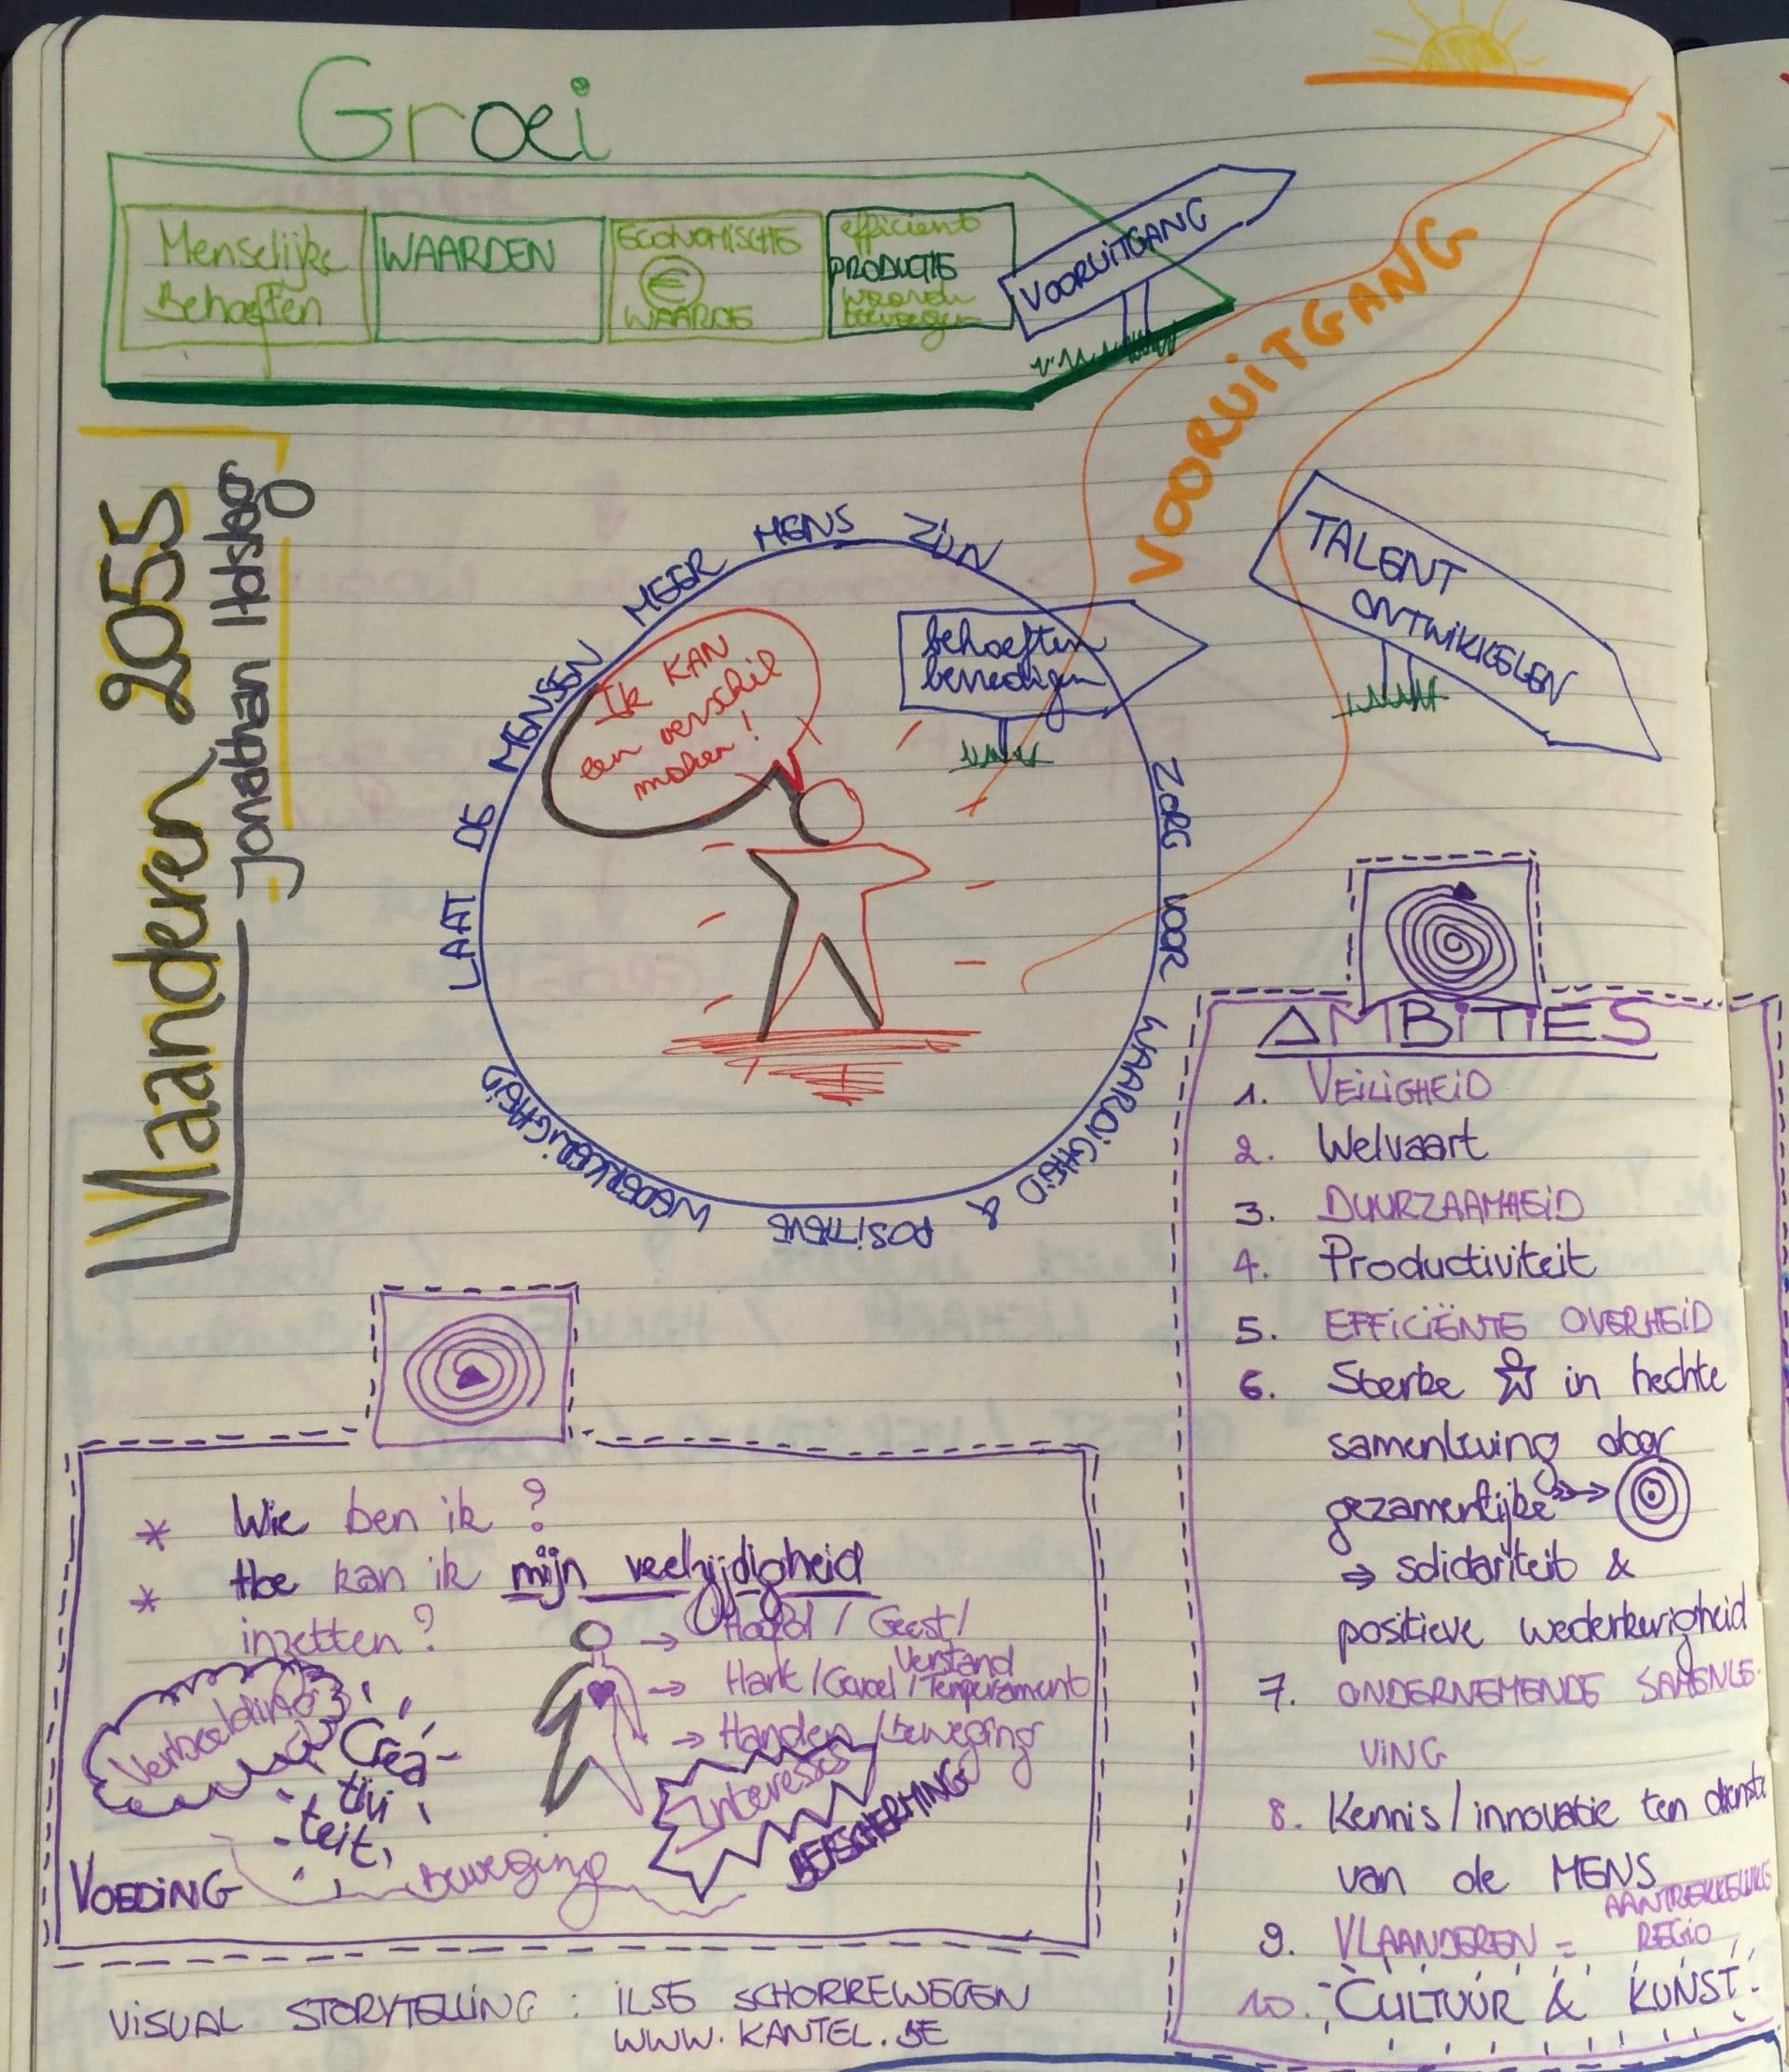 Groei
Menselijke
Behoeften
WAARDEN
ECONOMISCHE
€
WAARDE
efficiente
PRODUCTIE
waarde
toevoegen
VOORUITGANG
VOORUITGANG
Vlaanderen 2055
Jonathan Holslag
LAAT DE MENSEN MEER MENS ZIJN
ZORG VOOR WAARDIGHEID & POSITIEVE WEDERKERIGHEID
Ik KAN
een verschil
maken!
behoeften
bevredigen
TALENT
ONTWIKKELEN
AMBITIES
1. VEILIGHEID
2. Welvaart
3. DUURZAAMHEID
4. Productiviteit
5. EFFICIËNTE OVERHEID
6. Sterke in hechte
samenleving door
gezamenlijke
⇒ solidariteit &
positieve wederkerigheid
7. ONDERNEMENDE SAMENLE-
VING
8. Kennis/innovatie ten dienste
van de MENS
9. VLAANDEREN = AANTREKKELIJKE
REGIO
10. CULTUUR & KUNST
* Wie ben ik?
* Hoe kan ik mijn veelzijdigheid
inzetten?
→ Hoofd / Geest /
Verstand
→ Hart / Gevoel / Temperament
→ Handen / beweging
Verbeelding
Crea-
tivi
teit
Interesses
BESCHERMING
VOEDING
Beweging
VISUAL STORYTELLING: ILSE SCHORREWEGEN
WWW.KANTEL.BE